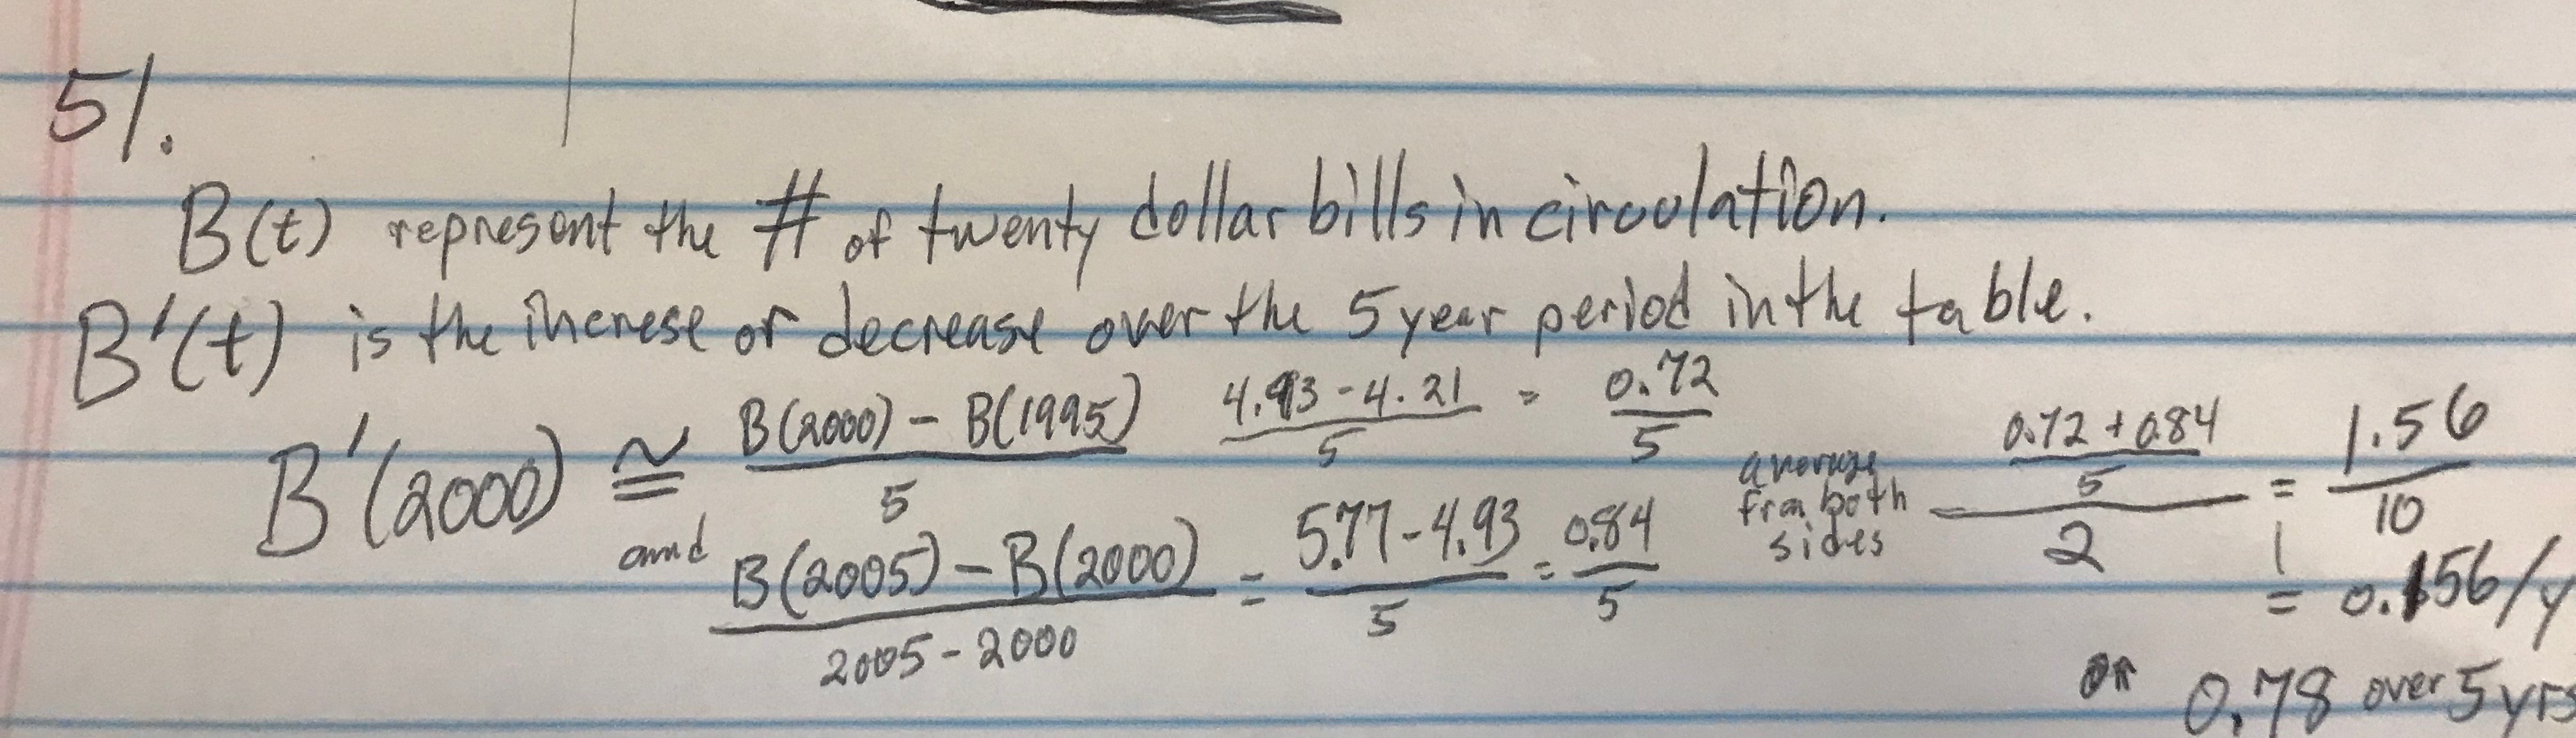 51.
B(t) represent the # of twenty dollar bills in circulation.
B'(t) is the increse or decrease over the 5 year period in the table.
B'(2000) ≅ B(2000) - B(1995) / 5   4.93 - 4.21 / 5 = 0.72 / 5
and B(2005) - B(2000) / 2005 - 2000 = 5.77 - 4.93 / 5 = 0.84 / 5
average from both sides   0.72 + 0.84 / 5 / 2 = 1.56 / 10
= 0.156/y
or 0.78 over 5 yrs